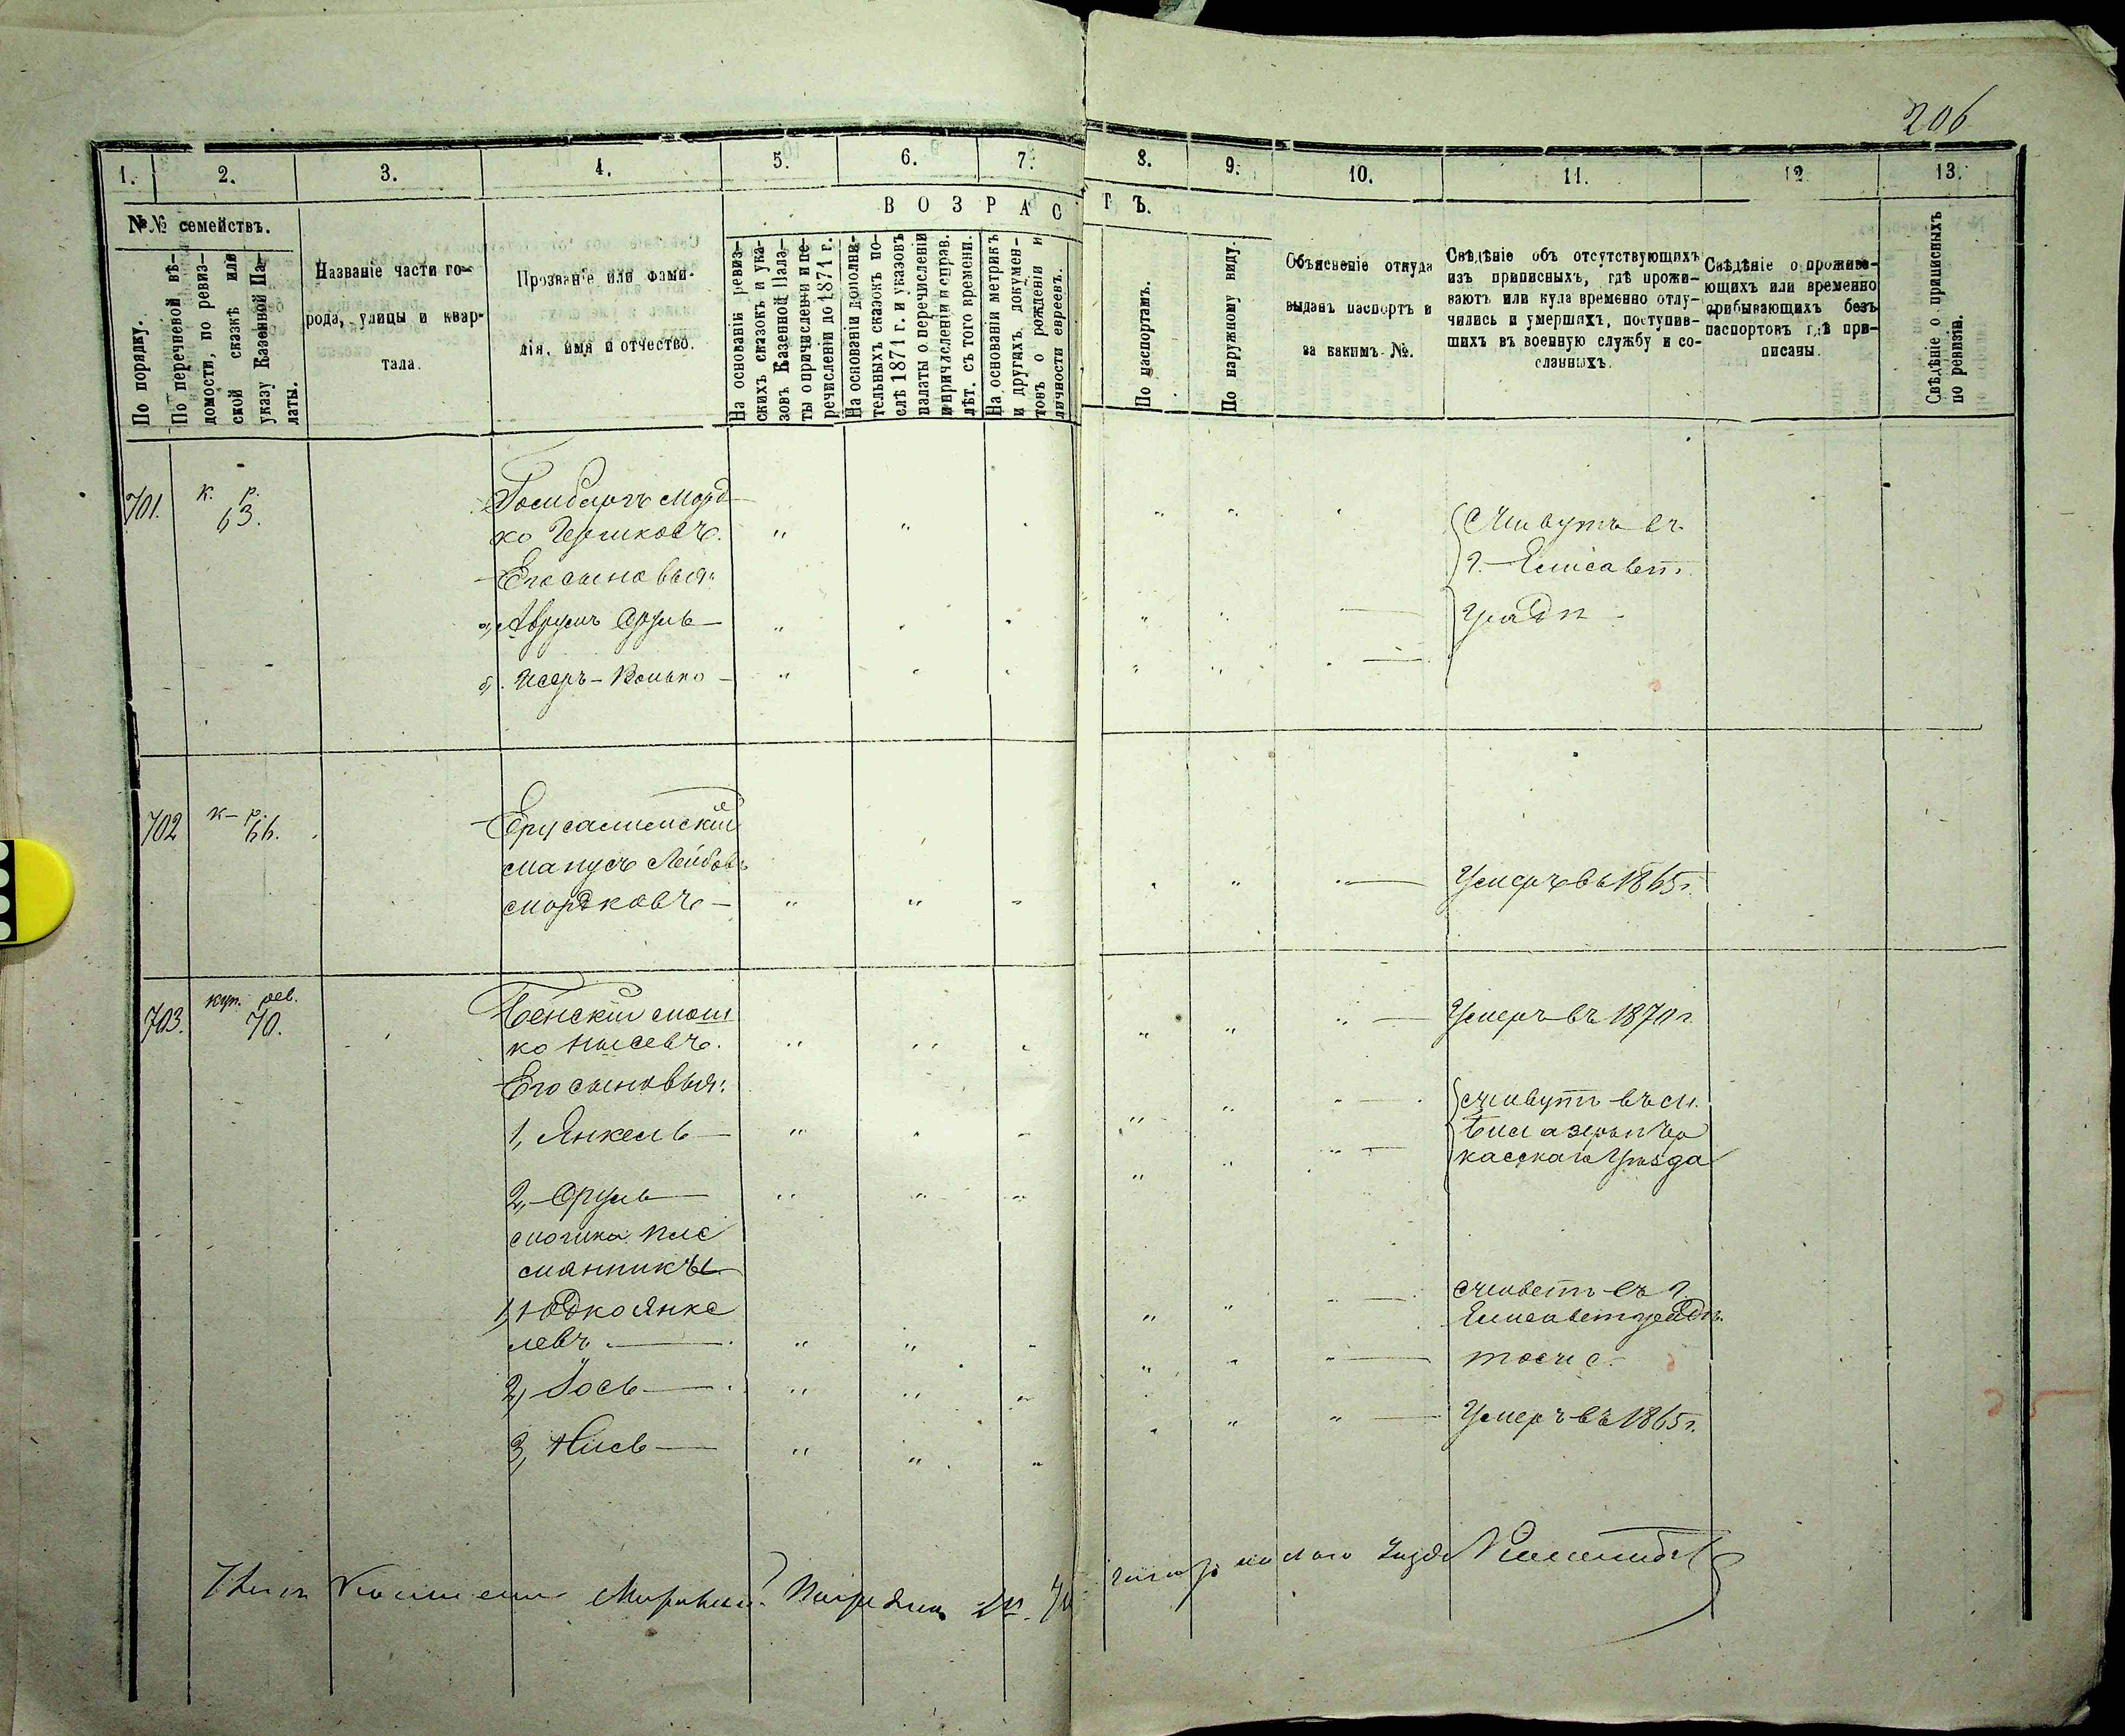 206
1. 2. 3. 4. 5. 6. 7. 8. 9. 10. 11. 12 13.
№№ семействъ.
По порядку.
По перечневой вѣ-
домости, по ревиз-
ской сказкѣ или
указу Казенной Па-
латы.
Названіе части го-
рода, улицы и квар-
тала.
Прозваніе или фами-
лія, имя и отчество.
ВОЗРАСТЪ.
На основаніи ревиз-
скихъ сказокъ и ука-
зовъ Казенной Пала-
ты о причисленіи и пе-
речисленіи до 1871 г.
На основаніи дополни-
тельныхъ сказокъ по-
слѣ 1871 г. и указовъ
палаты о перечисленіи
и причисленіи и справ.
лѣт. съ того времени.
На основаніи метрикъ
и другихъ докумен-
товъ о рожденіи и
личности евреевъ.
По паспортамъ.
По наружному виду.
Объясненіе откуда
выданъ паспортъ и
за какимъ №.
Свѣдѣніе объ отсутствующихъ
изъ приписныхъ, гдѣ прожи-
ваютъ или куда временно отлу-
чились и умершихъ, поступив-
шихъ въ военную службу и со-
сланныхъ.
Свѣдѣніе о прожива-
ющихъ или временно
прибывающихъ безъ
паспортовъ гдѣ при-
писаны.
Свѣдѣніе о приписныхъ
по ревизіи.
701. к. р.
63.
Морд
ко Гершковъ.
Его сыновья:
а, Аврумъ Сруль
б, Исеръ-Волько
Живутъ въ
г. Елисавет
градѣ
702 к-р.
66.
Ерусалимскій
Манусъ Лейбовъ
Мордковъ
Умеръ въ 1865 г.
703. куп. рев.
70.
Бенскій Мош
ко Нысевъ.
Умеръ въ 1870 г.
Его сыновья:
1, Янкель
2, Сруль
Живутъ въ м.
Черкасскаго Уѣзда
Мошка пле
мянники
1, Юдко Янке
левъ
Живетъ въ г.
Елисаветградѣ.
2, Іось
тоже
3, Нись
Умеръ въ 1865 г.